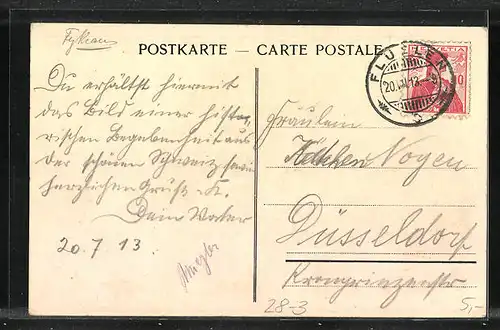 POSTKARTE — CARTE POSTALE
HELVETIA
10
FLUELEN
20.VII.13.-9
Du erhältst hiermit
das Bild einer histo-
rischen Begebenheit aus
der schönen Schweiz sowie
herzlichen Gruß
Dein Vater
20.7 13
Fräulein
Käthchen Noyen
Düsseldorf
Kronprinzenstr
28-3
5,-